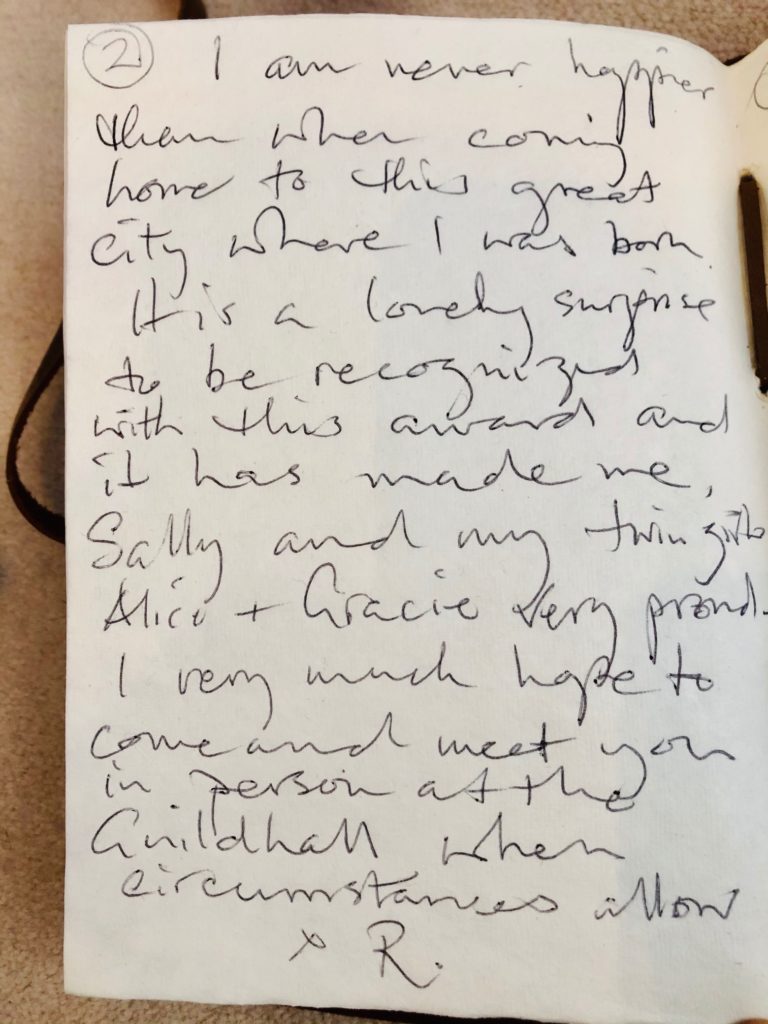 2 I am never happier
than when coming
home to this great
city where I was born.
It is a lovely surprise
to be recognized
with this award and
it has made me,
Sally and my twin girls
Alice + Gracie very proud.
I very much hope to
come and meet you
in person at the
Guildhall when
circumstances allow
x R.